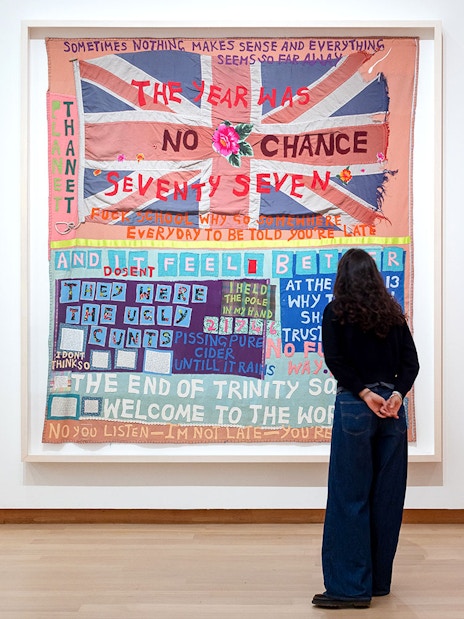 SOMETIMES NOTHING MAKES SENSE AND EVERYTHING
SEEMS SO FAR AWAY
THE YEAR WAS
PLANET
THANET
NO CHANCE
SEVENTY SEVEN
FUCK SCHOOL WHY GO SOMEWHERE
EVERYDAY TO BE TOLD YOU'RE LATE
AND IT FEEL BETTER
DOSENT
THEY WERE
THE UGLY
CUNTS
I DONT
THINK SO
I HELD
THE POLE
IN MY HAND
PISSING PURE
CIDER
UNTILL IT RAINS
AT THE 13
WHY
TRUST
NO FU
WAY
THE END OF TRINITY SQ
WELCOME TO THE WOR
NO YOU LISTEN—IM NOT LATE—YOU'RE